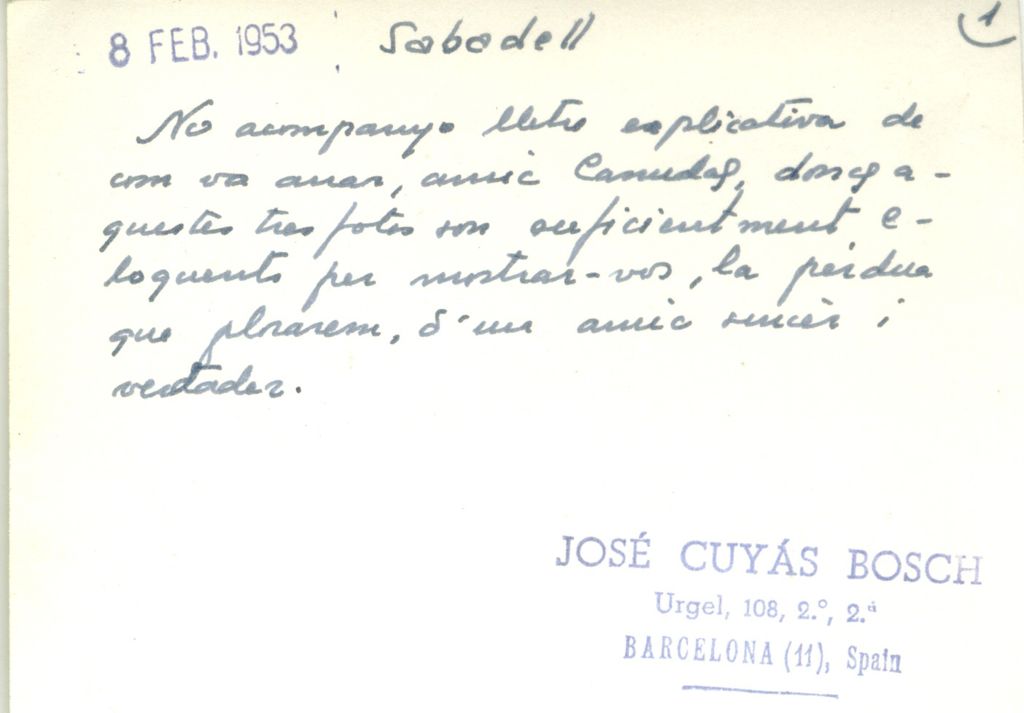 8 FEB. 1953 Sabadell 1
No acompanyo lletra explicativa de
com va anar, amic Canudas, doncs a-
questes tres fotos son suficientment e-
loquents per mostrar-vos, la pèrdua
que plorarem, d'un amic sincèr i
verdader.
JOSÉ CUYÁS BOSCH
Urgel, 108, 2.º, 2.ª
BARCELONA (11), Spain